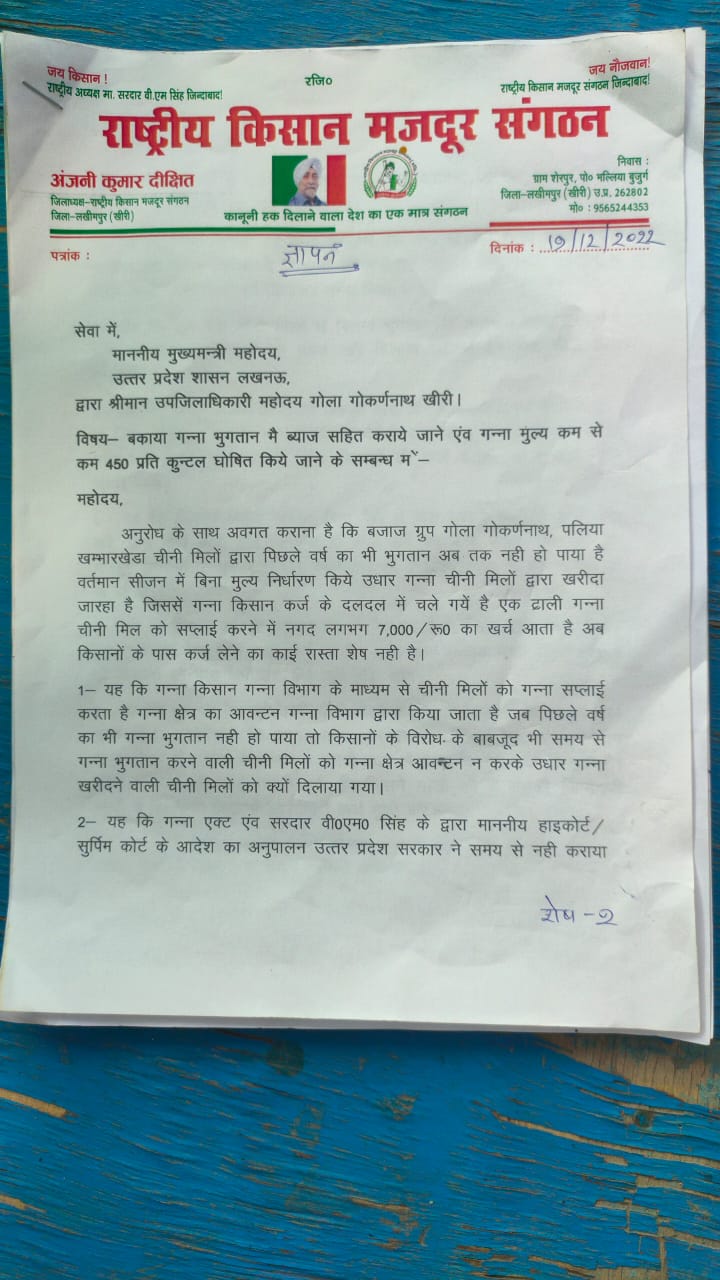 जय किसान !
राष्ट्रीय अध्यक्ष मा. सरदार वी.एम सिंह जिन्दाबाद!
रजि०
जय नौजवान!
राष्ट्रीय किसान मजदूर संगठन जिन्दाबाद!
राष्ट्रीय किसान मजदूर संगठन
अंजनी कुमार दीक्षित
जिलाध्यक्ष-राष्ट्रीय किसान मजदूर संगठन
जिला-लखीमपुर (खीरी)
निवास :
ग्राम शेरपुर, पो० मल्लिया बुजुर्ग
जिला-लखीमपुर (खीरी) उ.प्र. 262802
मो० : 9565244353
कानूनी हक दिलाने वाला देश का एक मात्र संगठन
पत्रांक :
ज्ञापन
दिनांक : 19/12/2022
सेवा में,
माननीय मुख्यमन्त्री महोदय,
उत्तर प्रदेश शासन लखनऊ,
द्वारा श्रीमान उपजिलाधिकारी महोदय गोला गोकर्णनाथ खीरी।
विषय– बकाया गन्ना भुगतान मै ब्याज सहित कराये जाने एंव गन्ना मुल्य कम से
कम 450 प्रति कुन्टल घोषित किये जाने के सम्बन्ध में–
महोदय,
अनुरोध के साथ अवगत कराना है कि बजाज ग्रुप गोला गोकर्णनाथ, पलिया
खम्भारखेडा चीनी मिलों द्वारा पिछले वर्ष का भी भुगतान अब तक नही हो पाया है
वर्तमान सीजन में बिना मुल्य निर्धारण किये उधार गन्ना चीनी मिलों द्वारा खरीदा
जारहा है जिससें गन्ना किसान कर्ज के दलदल में चले गयें है एक ढाली गन्ना
चीनी मिल को सप्लाई करने में नगद लगभग 7,000/रू0 का खर्च आता है अब
किसानों के पास कर्ज लेने का काई रास्ता शेष नही है।
1– यह कि गन्ना किसान गन्ना विभाग के माध्यम से चीनी मिलों को गन्ना सप्लाई
करता है गन्ना क्षेत्र का आवन्टन गन्ना विभाग द्वारा किया जाता है जब पिछले वर्ष
का भी गन्ना भुगतान नही हो पाया तो किसानों के विरोध के बाबजूद भी समय से
गन्ना भुगतान करने वाली चीनी मिलों को गन्ना क्षेत्र आवन्टन न करके उधार गन्ना
खरीदने वाली चीनी मिलों को क्यों दिलाया गया।
2– यह कि गन्ना एक्ट एंव सरदार वी0एम0 सिंह के द्वारा माननीय हाइकोर्ट/
सुर्पिम कोर्ट के आदेश का अनुपालन उत्तर प्रदेश सरकार ने समय से नही कराया
शेष - 2